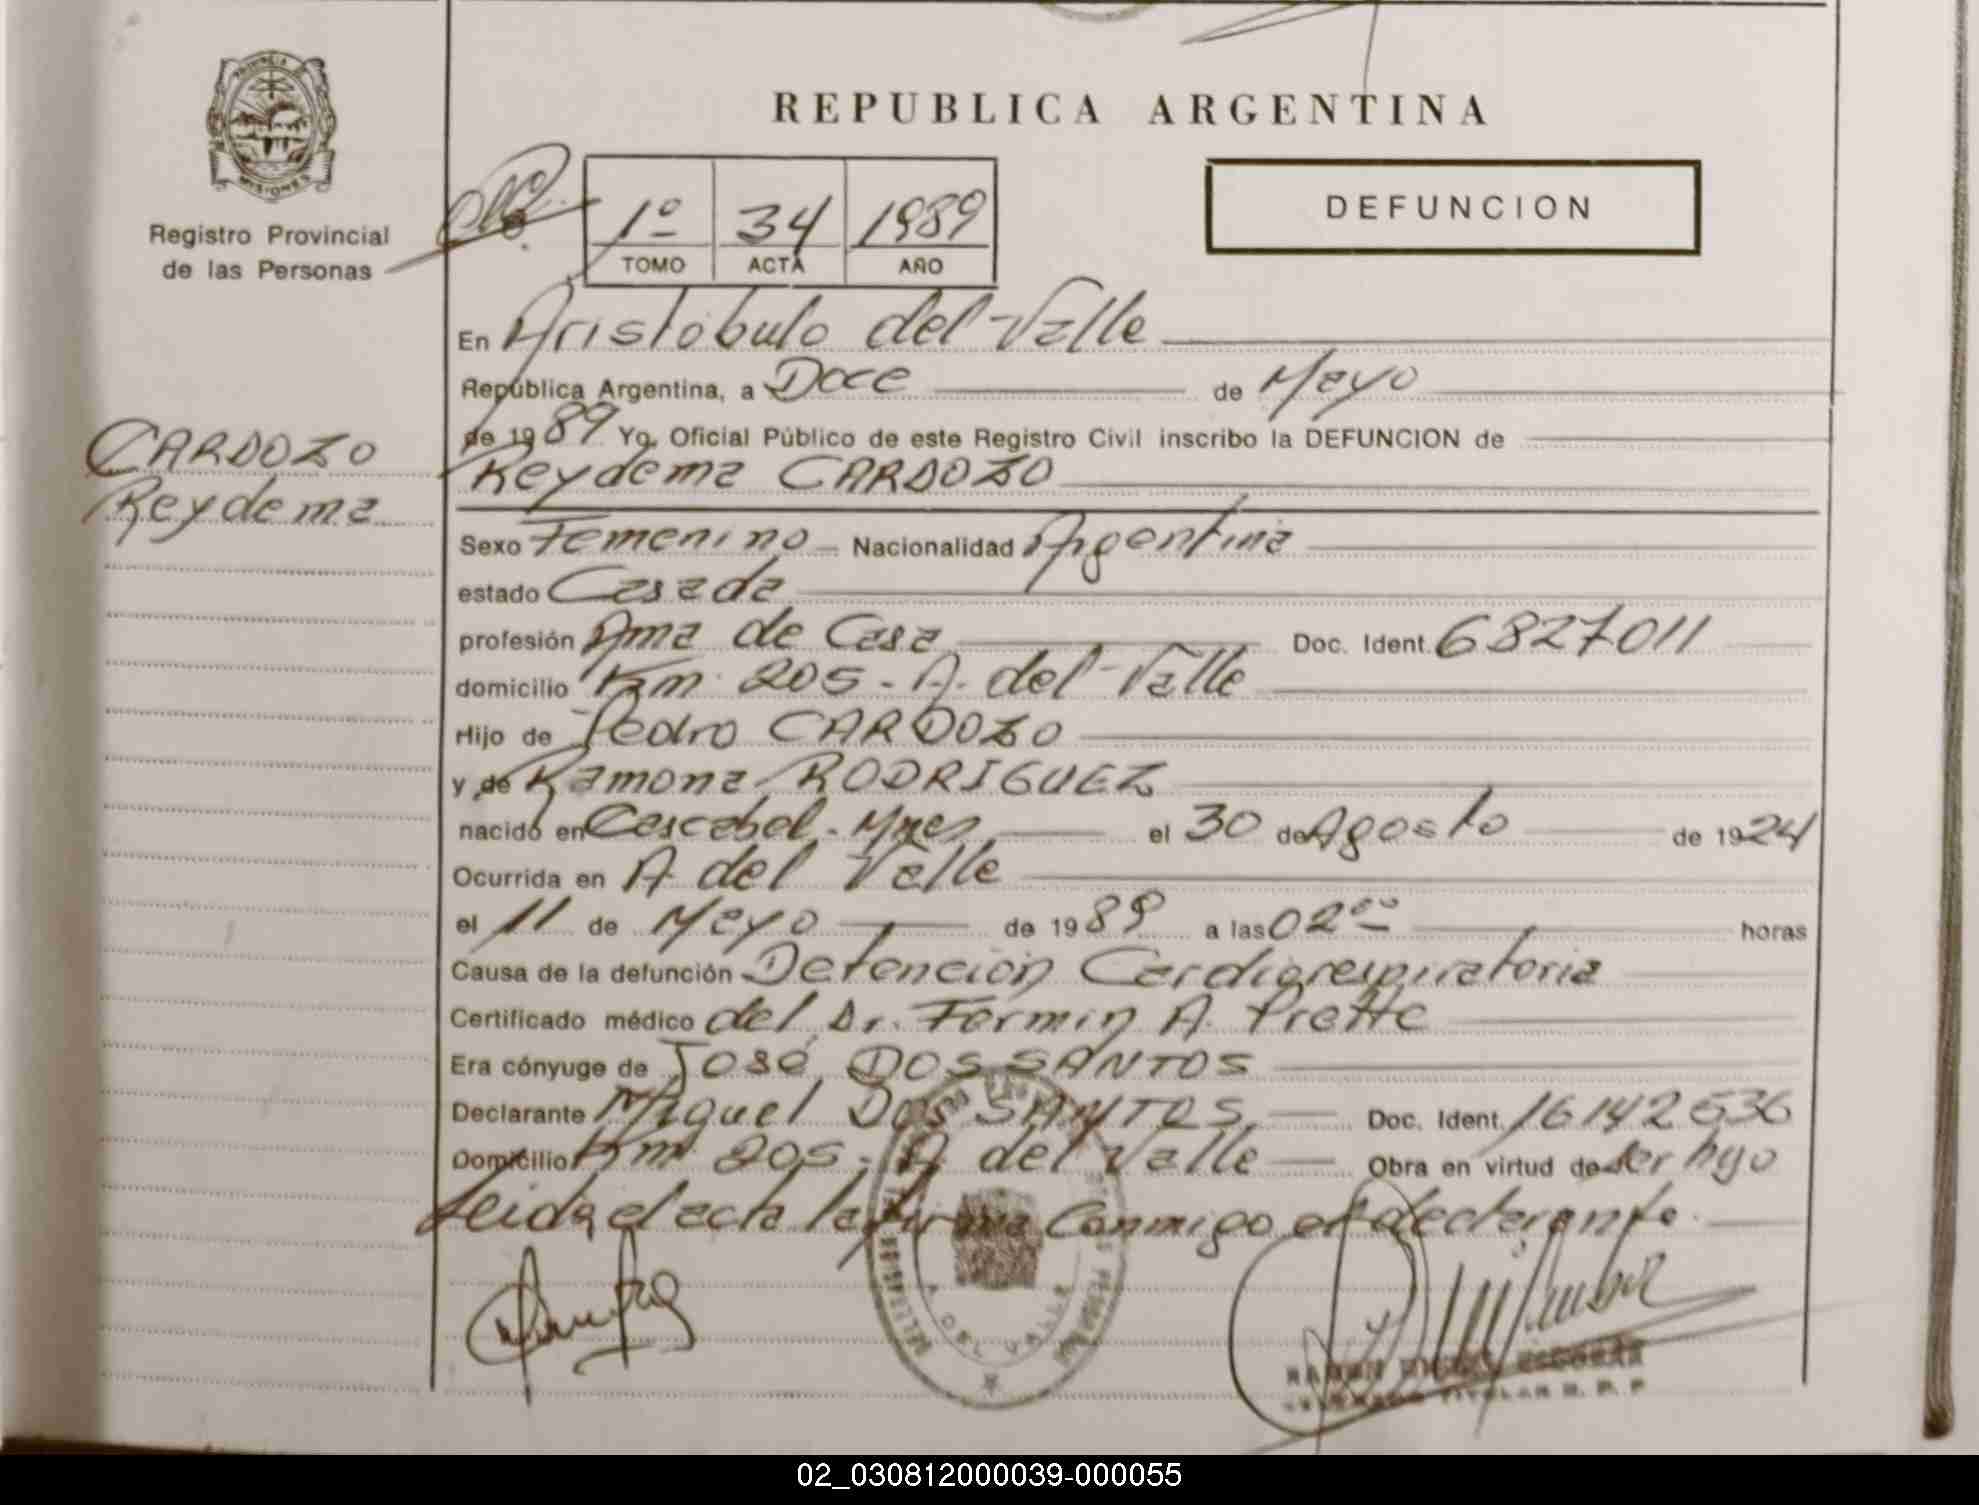 REPUBLICA ARGENTINA
PROVINCIA DE
MISIONES
Registro Provincial
de las Personas
1º 34 1989
TOMO ACTA AÑO
DEFUNCION
CARDOZO
Reydema
En Aristobulo del Valle
República Argentina, a Doce de Mayo
de 1989 Yo, Oficial Público de este Registro Civil inscribo la DEFUNCION de
Reydema CARDOZO
Sexo Femenino Nacionalidad Argentina
estado Casada
profesión Ama de Casa Doc. Ident. 6827011
domicilio Km. 205 - A. del Valle
Hijo de Pedro CARDOZO
y de Ramona RODRIGUEZ
nacido en Cascabel - Mnes el 30 de Agosto de 1924
Ocurrida en A. del Valle
el 11 de Mayo de 1989 a las 02⁰⁰ horas
Causa de la defunción Detención Cardiorespiratoria
Certificado médico del Dr. Fermin A.
Era cónyuge de José DOS SANTOS
Declarante Miguel Dos SANTOS Doc. Ident. 16142636
Domicilio Km. 205 - A del Valle Obra en virtud de ser hijo
Leida el acta la firma Conmigo el declarante.
A. DEL VALLE
TITULAR R. P. P
02_030812000039-000055